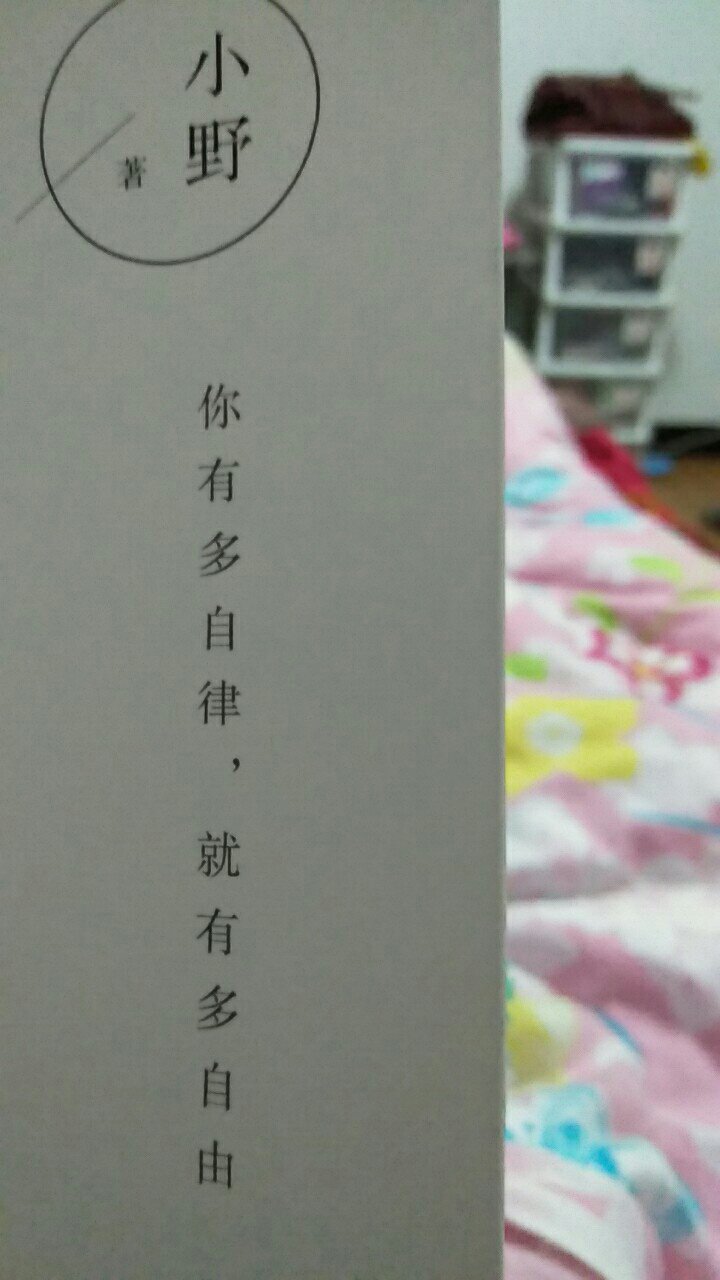 小野
著
你有多自律，就有多自由